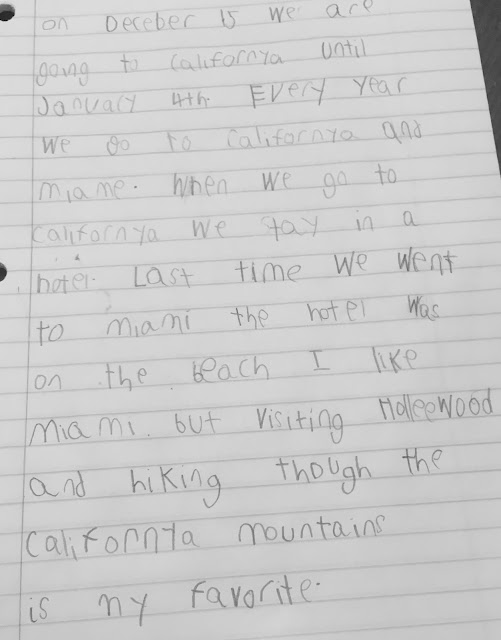 on Deceber 15 we are
going to california until
January 4th. Every year
we go to californya and
miame. When we go to
californya we stay in a
hotel. Last time we went
to miami the hotel was
on the beach I like
miami. but visiting Holleewood
and hiking though the
californya mountains
is my favorite.